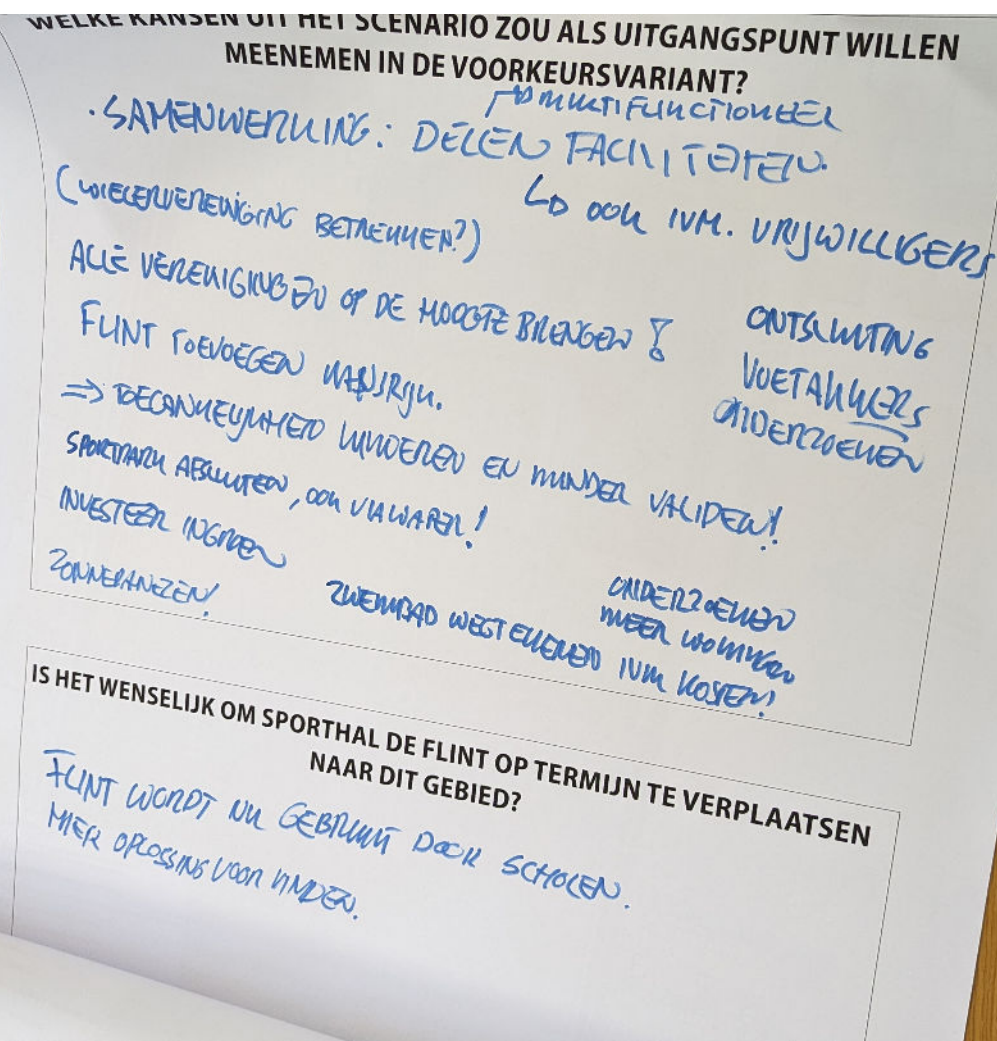 WELKE KANSEN UIT HET SCENARIO ZOU ALS UITGANGSPUNT WILLEN
MEENEMEN IN DE VOORKEURSVARIANT?
MULTIFUNCTIONEEL
· SAMENWERKING: DELEN FACILITEITEN.
↳ OOK IVM. VRIJWILLIGERS
(WIELERVERENIGING BETREKKEN?)
ALLE VERENIGINGEN OP DE HOOGTE BRENGEN!
FLINT TOEVOEGEN
⇒ TOEGANKELIJKHEID KINDEREN EN MINDER VALIDEN!
SPORTPARK ABSLUITEN, OOK VIA WAPEN!
INVESTEER IN GROEN
ZONNEPANELEN!
ONTSLUITING
VOETAKKERS
ONDERZOEKEN
ONDERZOEKEN
MEER WONINGEN
ZWEMBAD WEST IVM KOSTEN!
IS HET WENSELIJK OM SPORTHAL DE FLINT OP TERMIJN TE VERPLAATSEN
NAAR DIT GEBIED?
FLINT WORDT NU GEBRUIKT DOOR SCHOLEN.
HIER OPLOSSING VOOR VINDEN.